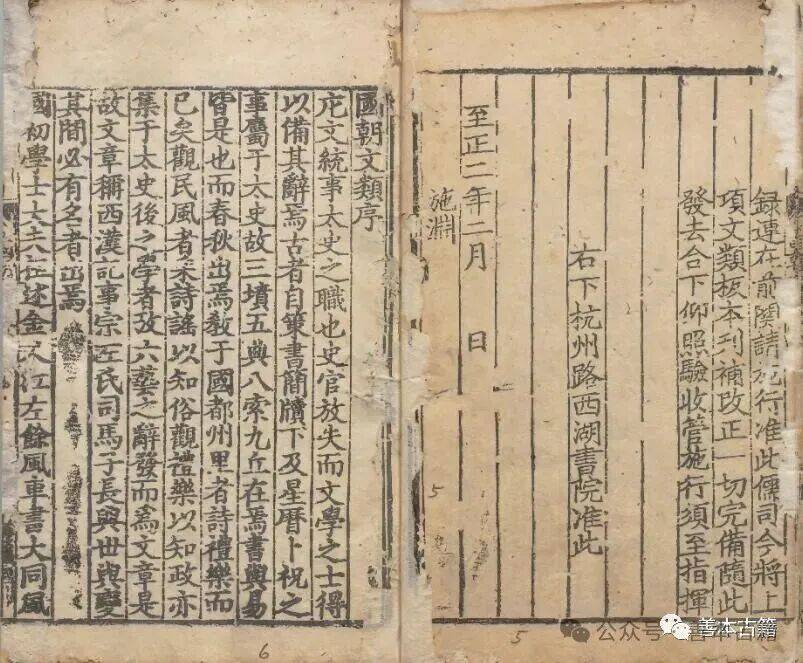 録連在前関請施行准此儒司今將上
項文類板本刋補改正一切完備隨此
發去合下仰照驗收管施行須至指揮
右下杭州路西湖書院准此
至正二年二月　日
施淵
5
5
國朝文類序
庀文統事太史之職也史官放失而文學之士得
以備其辭焉古者自策書簡牘下及星曆卜祝之
事屬于太史故三墳五典八索九丘在焉書與易
皆是也而春秋出焉敎于國都州里者詩禮樂而
已矣觀民風者采詩謠以知俗觀禮樂以知政亦
集于太史後之學者攷六藝之辭發而爲文章是
故文章稱西漢記事宗左氏司馬子長與世與變
其間必有名者出焉
國初學士大夫祖述金人江左餘風車書大同風
6
公众号
善本古籍